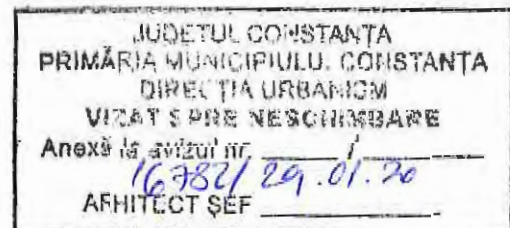 JUDEȚUL CONSTANȚA
PRIMĂRIA MUNICIPIULUI CONSTANȚA
DIRECȚIA URBANISM
VIZAT SPRE NESCHIMBARE
Anexă la avizul nr. ______/______
16782/ 29.01.20
ARHITECT ȘEF ______